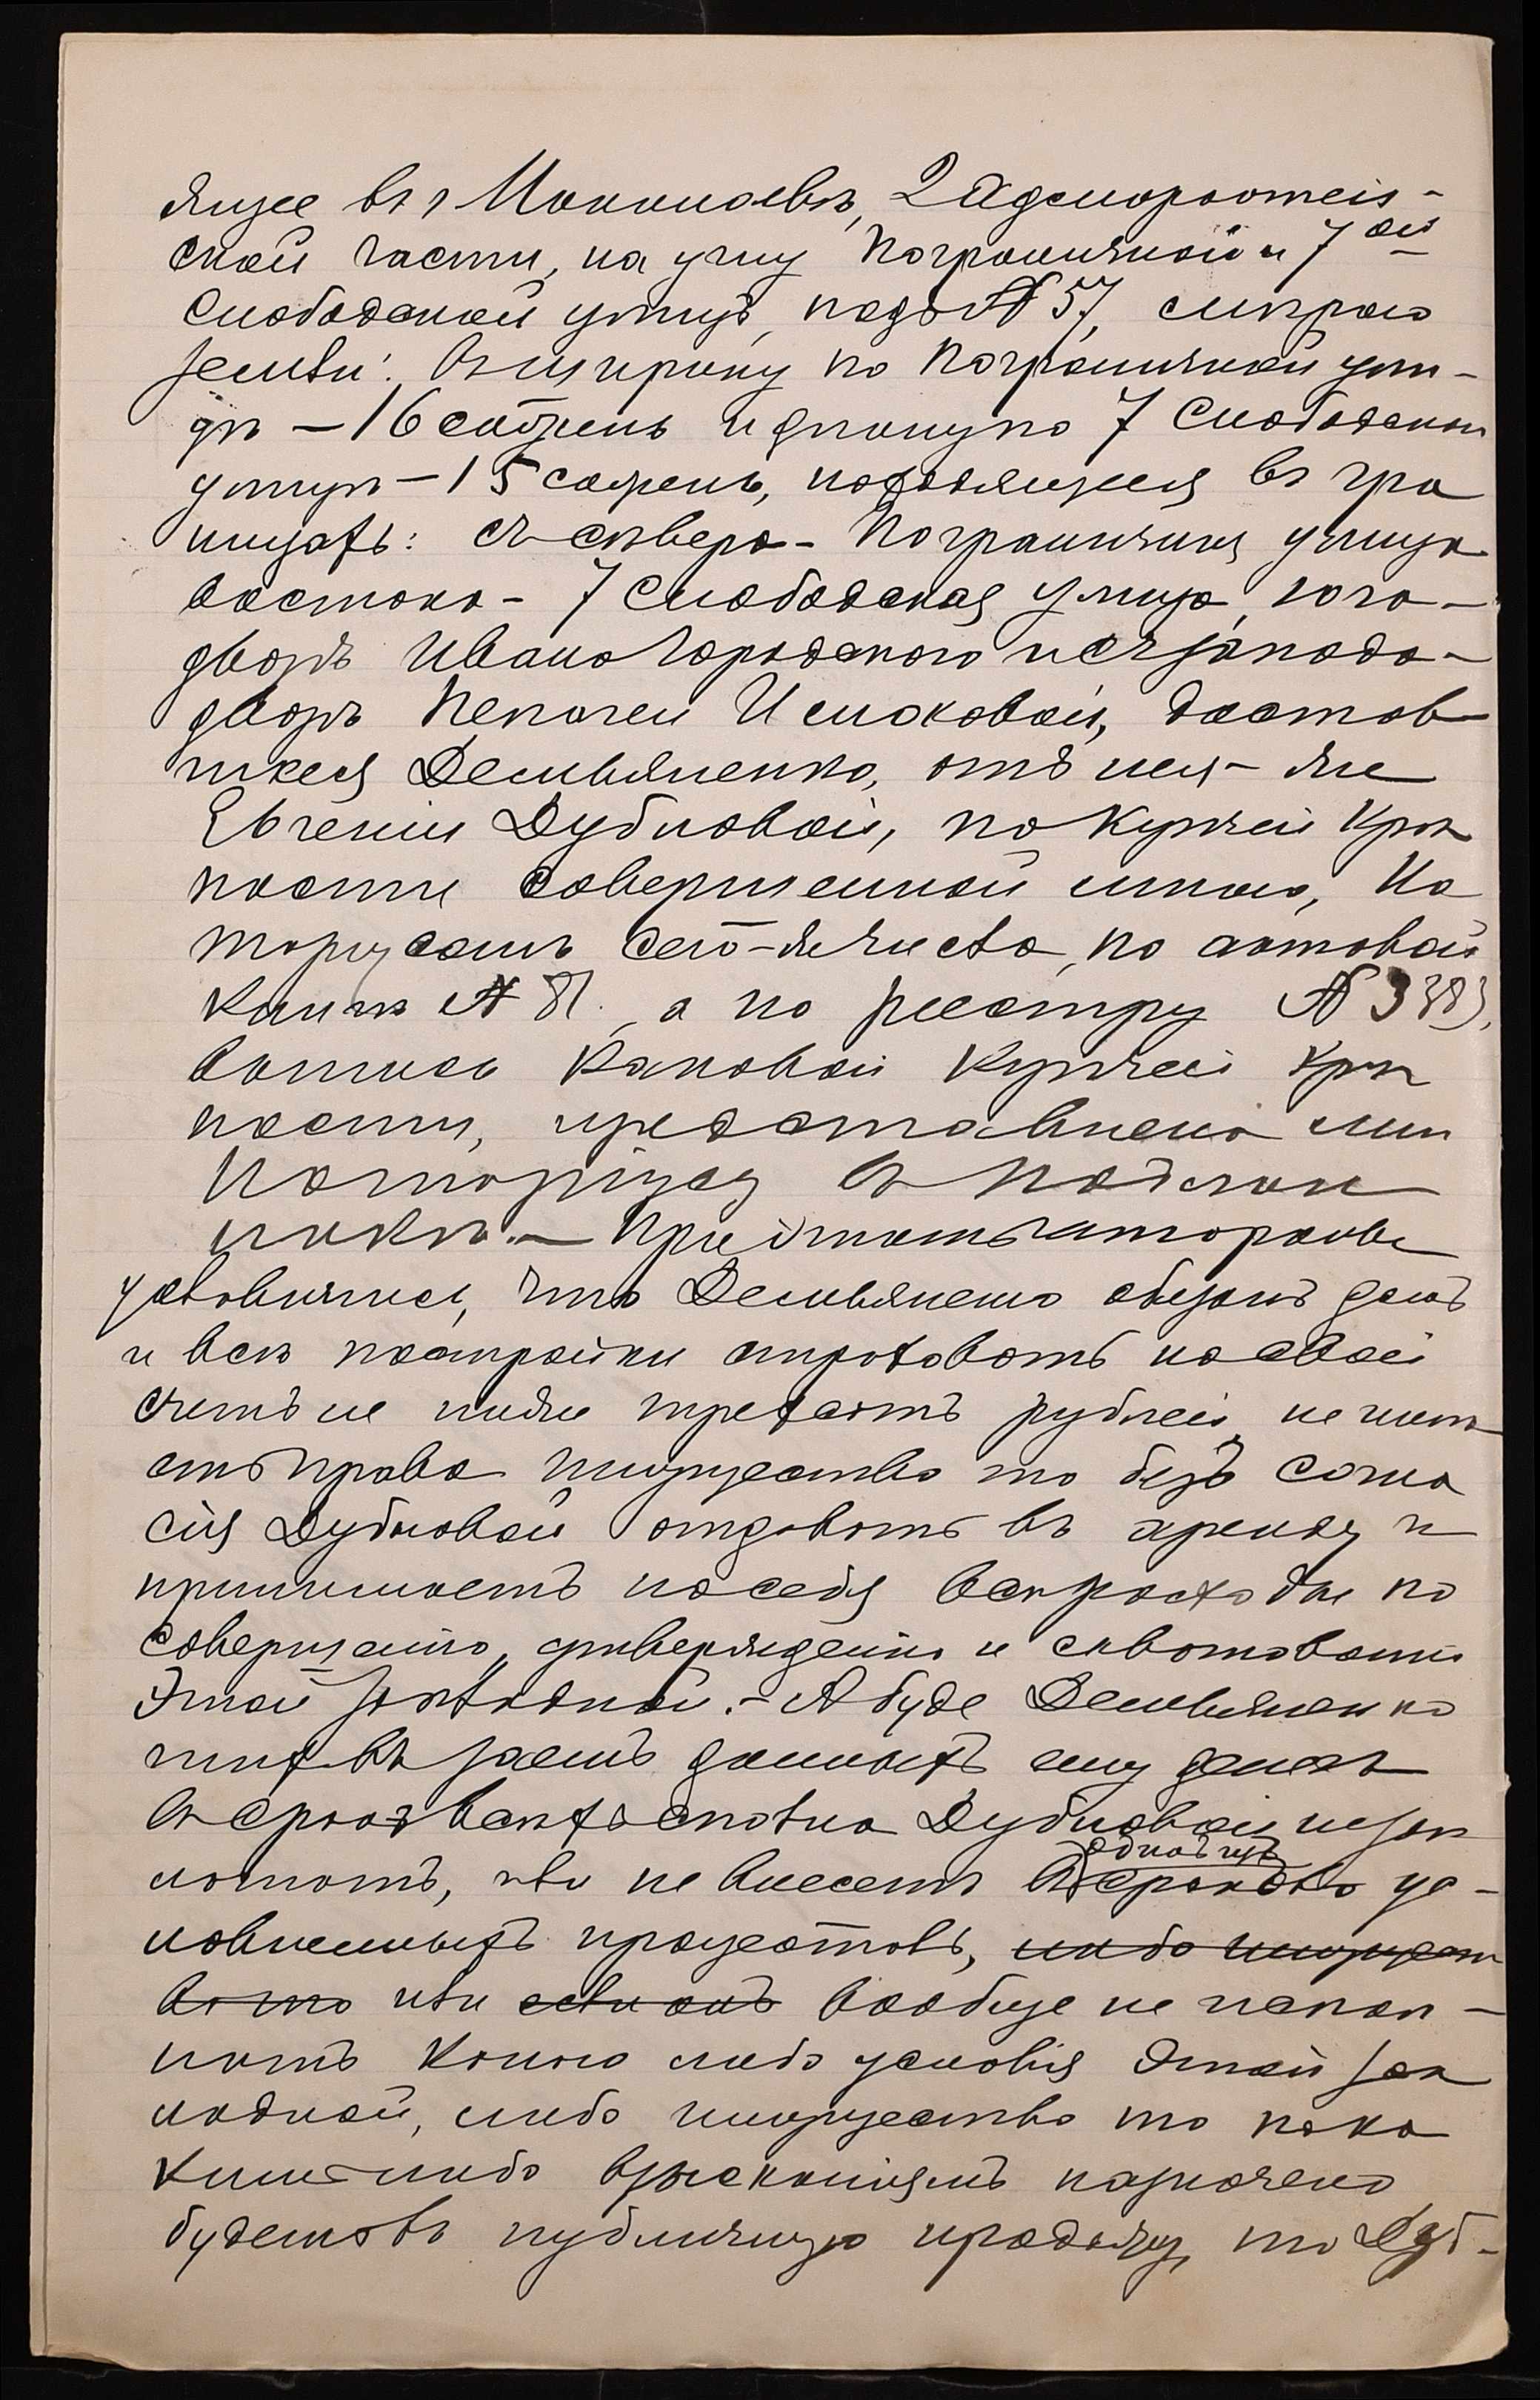 жащее въ г. Николаевѣ, 2 Адмиралтейс-
ской части, на углу Пограничной и 7ой
Слободской улицъ, подъ № 57, мѣрою
земли: въ ширину по Пограничной ули-
цѣ — 16 сажень и длину по 7 Слободской
улицѣ — 15 сажень, находящееся въ гра
ницахъ: съ сѣвера - Пограничная улица
востока - 7 Слободская улица, юга -
дворъ Ивана Городскаго и съ запада -
дворъ Пелагеи Исаковой, достав-
шееся Демьяненко, отъ нея-же
Евгеніи Дубновой, по купчей крѣ
пости совершенной мною, Но
таріусомъ сего-же числа, по актовой
книгѣ № 81, а по реестру № 3383,
выпись каковой купчей крѣ
пости, представлена мнѣ
Нотаріусу въ подлин
никѣ. — При этомъ стороны
условились, что Демьяненко обязанъ домъ
и всѣ постройки страховать на свой
счетъ не ниже трехсотъ рублей, не имѣ
етъ права имущество то безъ согла
сія Дубновой отдавать въ аренду и
принимаетъ на себя всѣ расходы по
совершенію, утвержденію и
этой закладной. - А буде Демьяненко
сихъ въ заемъ данныхъ ему денегъ
въ срокъ всѣхъ сполна Дубновой не зап
латитъ, или не внесетъ въ одинъ изъ сроковъ ус-
ловленныхъ процентовъ, либо имущест
во то или если онъ вообще не испол-
нитъ какого либо условія этой зак
ладной, либо имущество то по ка
кимъ-либо взысканіямъ назначено
будетъ въ публичную продажу, то Дуб-